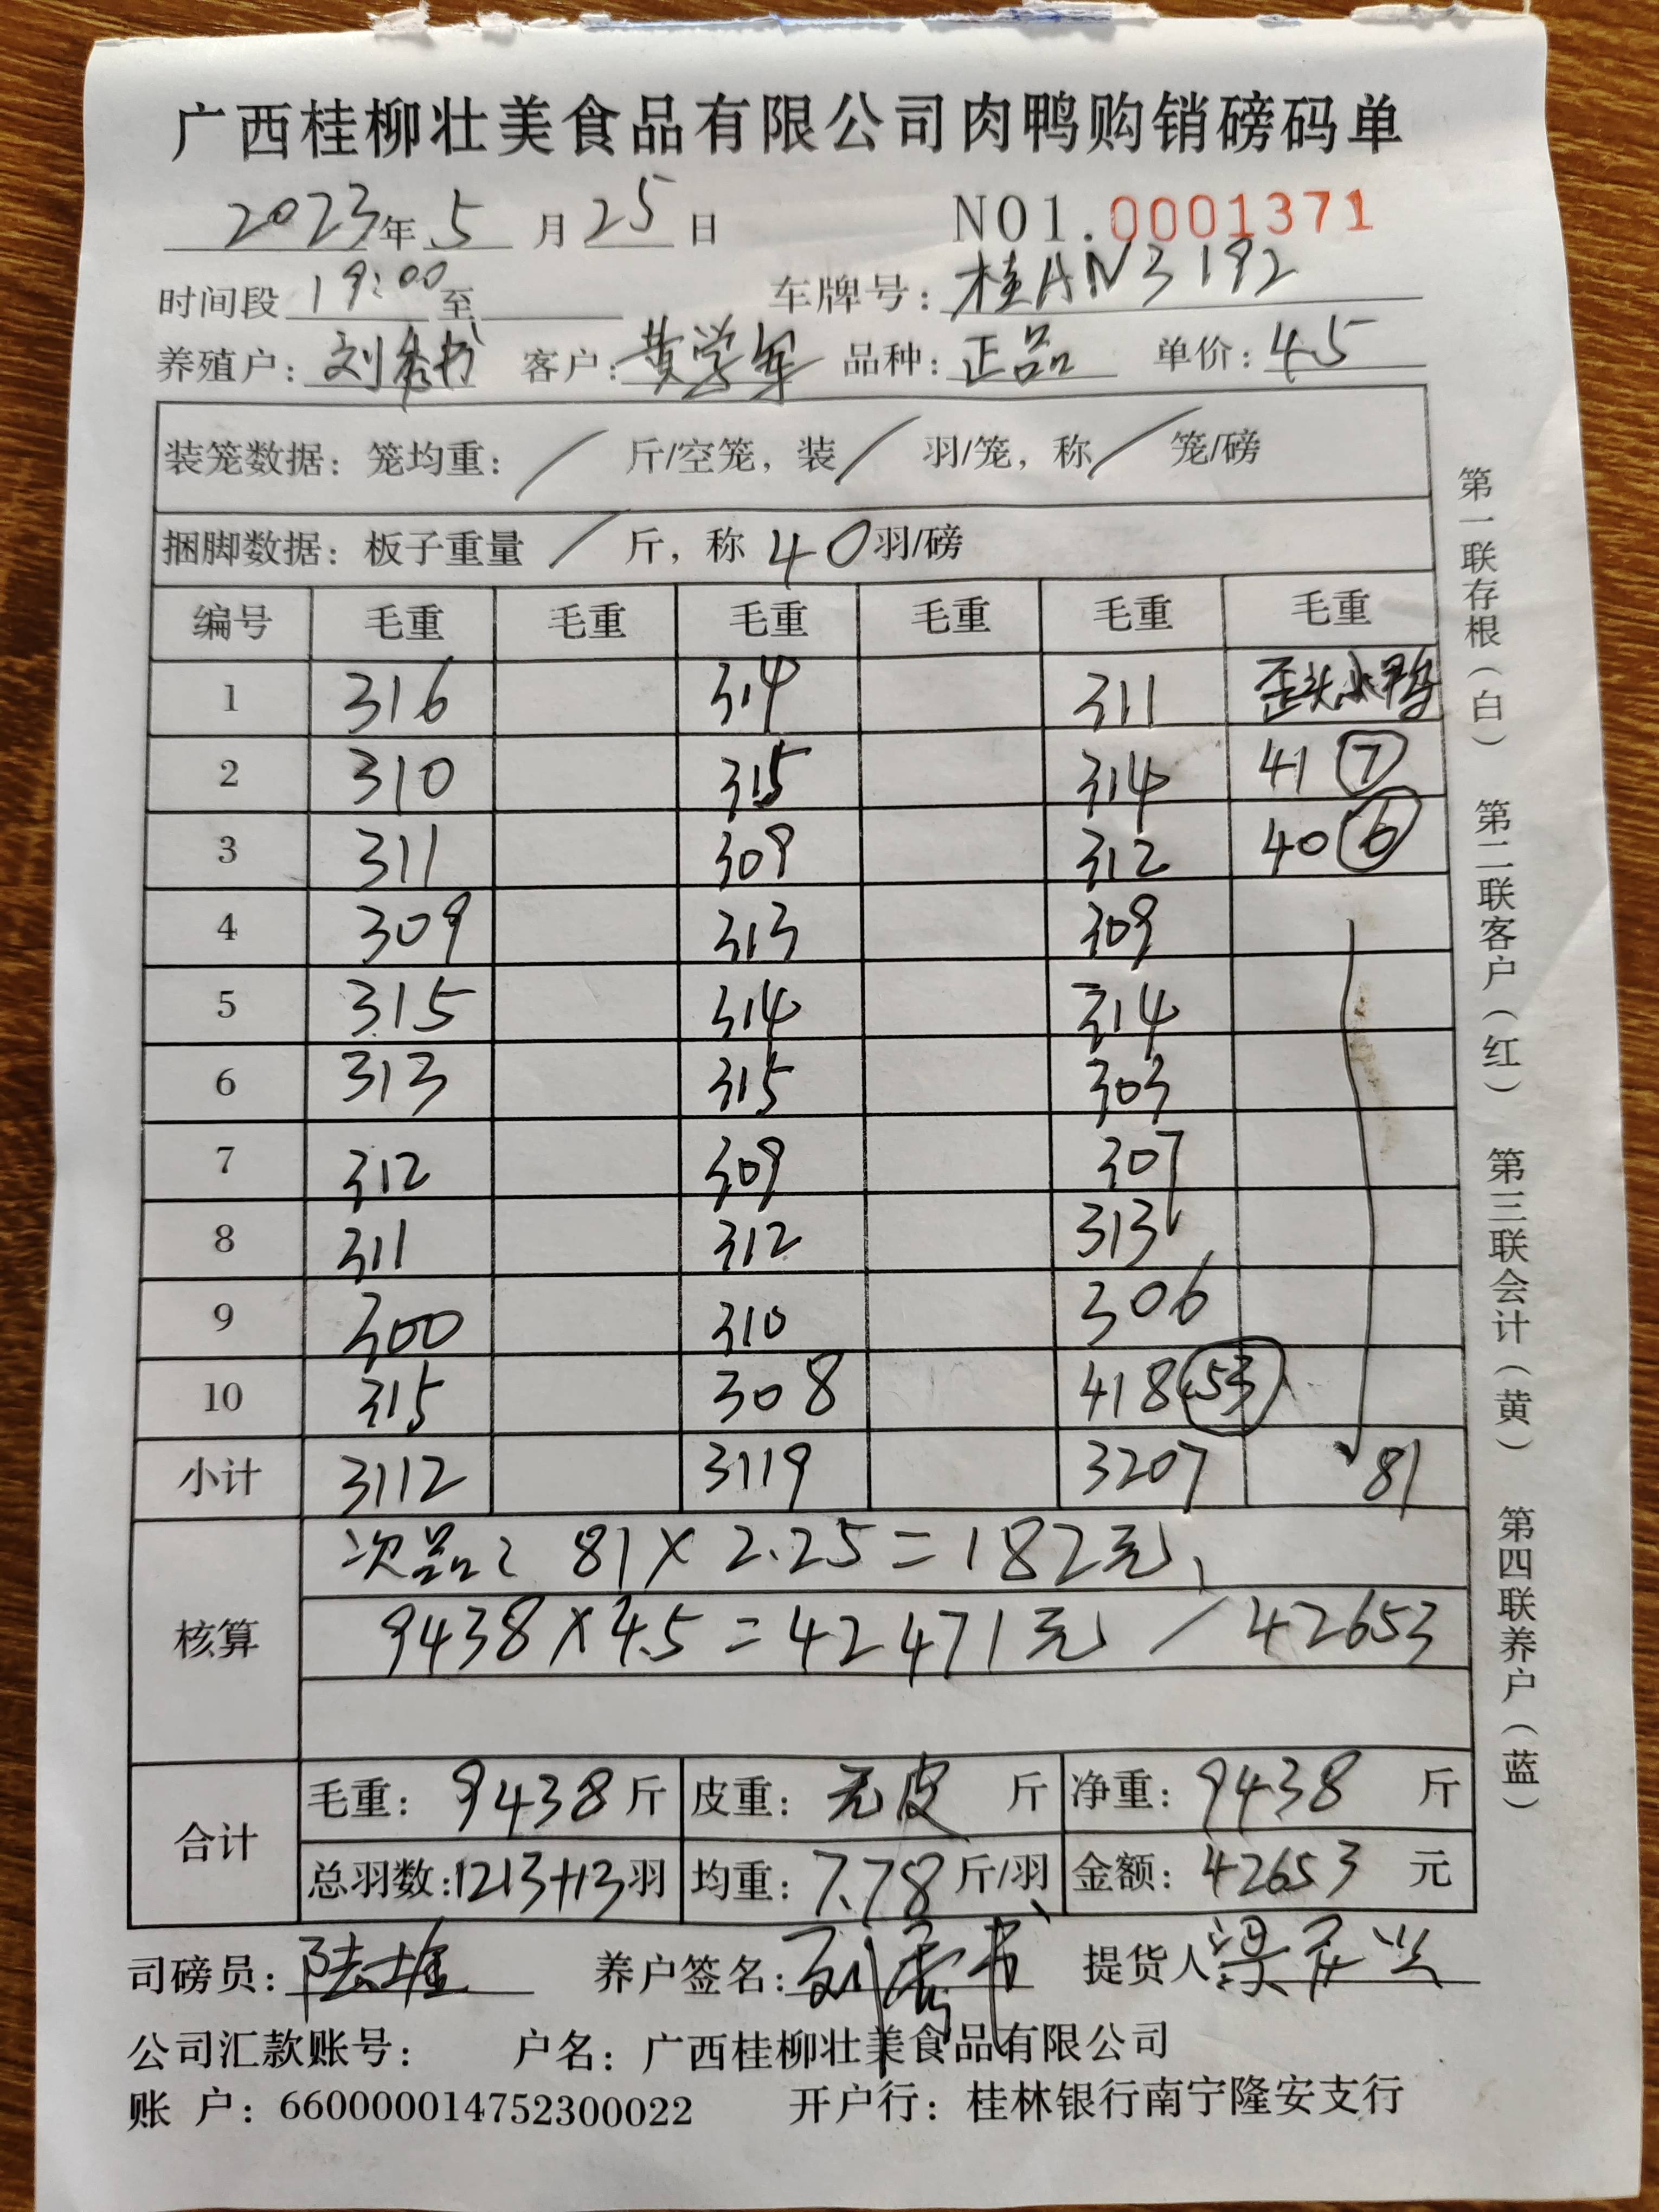 广西桂柳壮美食品有限公司肉鸭购销磅码单
2023年5月25日 NO1.0001371
时间段 19:00 至 车牌号：桂AN3192
养殖户：刘秀书 客户：黄学军 品种：正品 单价：4.5
装笼数据：笼均重：/ 斤/空笼，装/ 羽/笼，称/ 笼/磅
捆脚数据：板子重量 / 斤，称 40羽/磅
编号 毛重 毛重 毛重 毛重 毛重 毛重
1 316 314 311 歪头小鸭
2 310 315 314 41 ⑦
3 311 309 312 40 ⑥
4 309 313 309
5 315 314 314
6 313 315 303
7 312 309 307
8 311 312 313
9 300 310 306
10 315 308 418 53
小计 3112 3119 3207 81
核算
次品： 81×2.25=182元、
9438×4.5=42471元 / 42653
合计
毛重：9438斤 皮重：无皮 斤 净重：9438 斤
总羽数：1213+13羽 均重：7.78斤/羽 金额：42653 元
司磅员： 养户签名：刘秀书 提货人
公司汇款账号： 户名：广西桂柳壮美食品有限公司
账 户：660000014752300022 开户行：桂林银行南宁隆安支行
第一联存根（白） 第二联客户（红） 第三联会计（黄） 第四联养户（蓝）